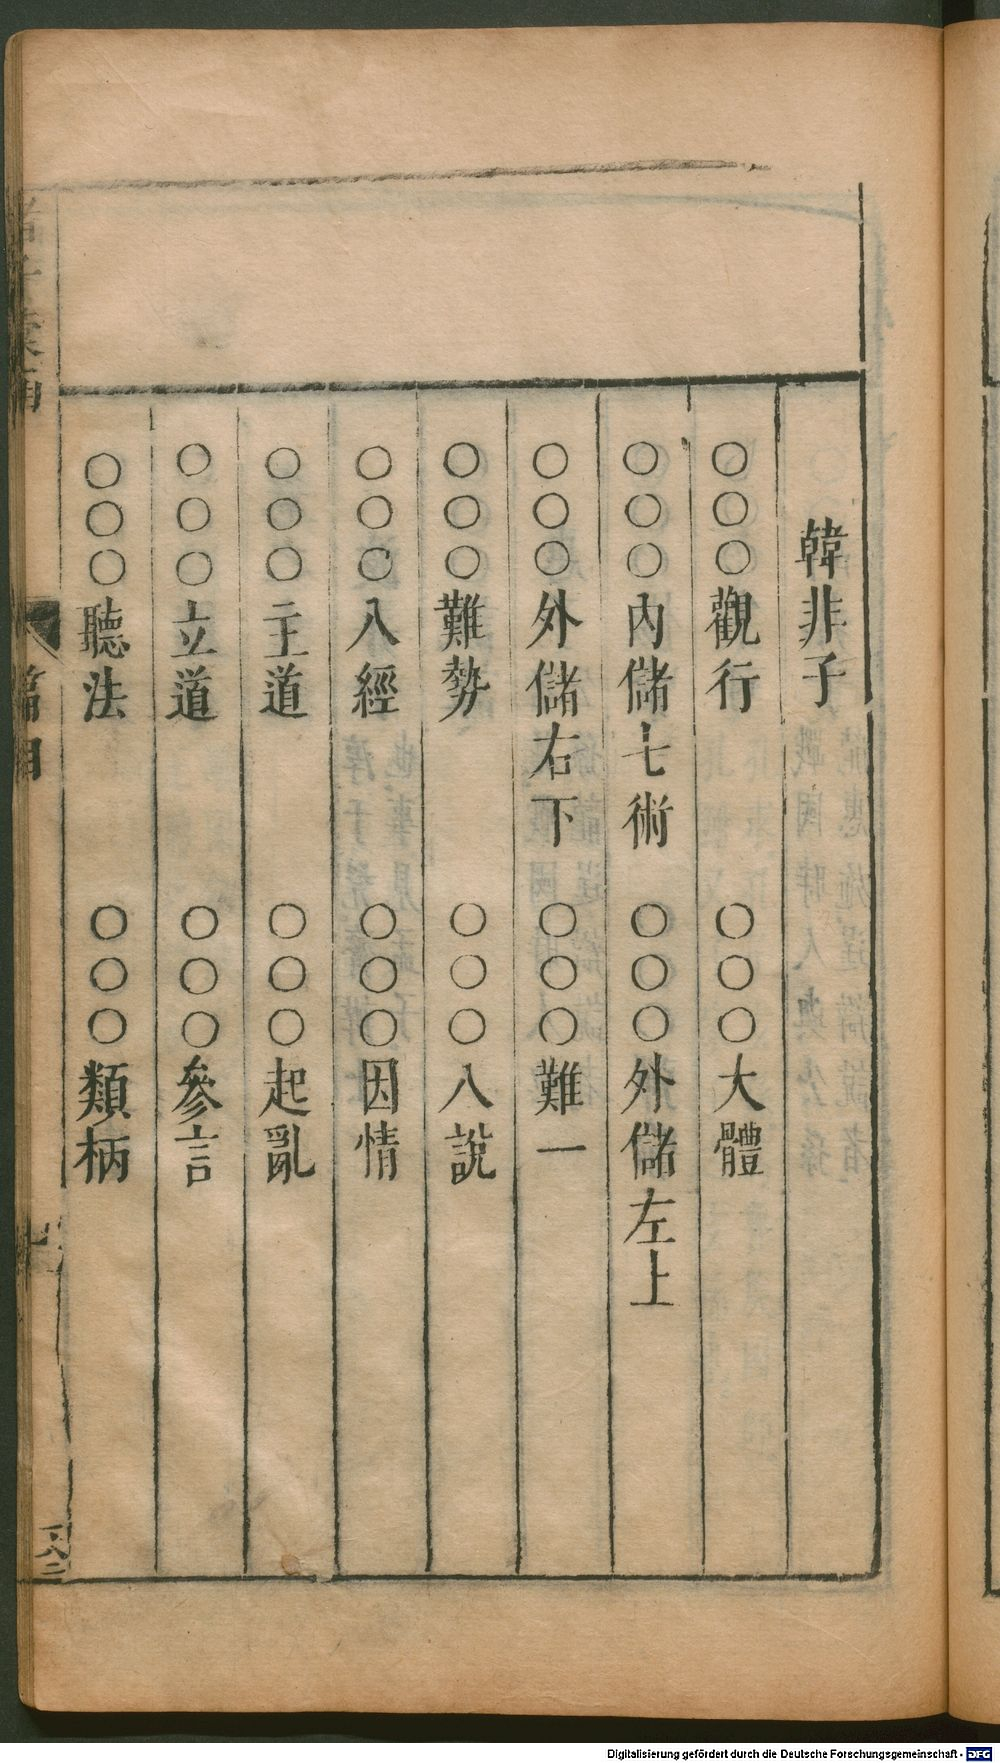 韓非子
○○○觀行　○○○大體
○○○內儲七術　○○○外儲左上
○○○外儲右下　○○○難一
○○○難勢　○○○八說
○○○八經　○○○因情
○○○主道　○○○起亂
○○○立道　○○○參言
○○○聽法　○○○類柄
Digitalisierung gefördert durch die Deutsche Forschungsgemeinschaft - DFG